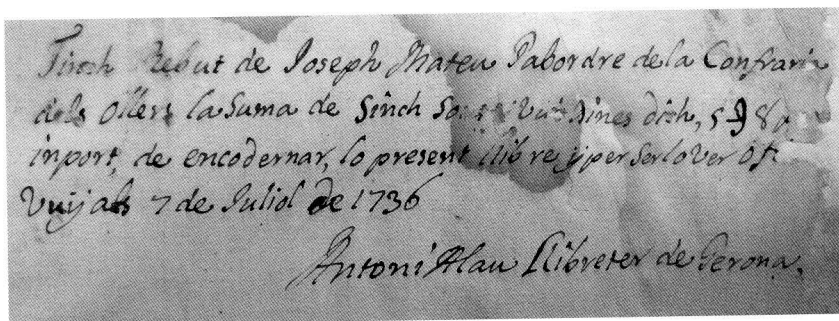 Tinch Rebut de Joseph Mateu Pabordre de la Confraria
dels Ollers la Suma de Sinch Sous Vuit dines dich, 5
inport, de encodernar, lo present llibre y per ser lo Ver ofi
Vuij als 7 de Juliol de 1736
Antoni Alau Llibreter de Gerona.